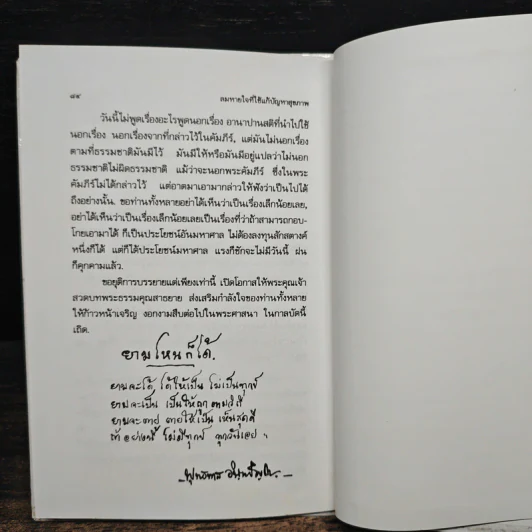 ๘๔
ลมหายใจที่ใช้แก้ปัญหาสุขภาพ
วันนี้ไม่พูดเรื่องอะไรพูดนอกเรื่อง อานาปานสติที่นำไปใช้
นอกเรื่อง นอกเรื่องจากที่กล่าวไว้ในคัมภีร์, แต่มันไม่นอกเรื่อง
ตามที่ธรรมชาติมันมีไว้ มันมีให้หรือมันมีอยู่แปลว่าไม่นอก
ธรรมชาติไม่ผิดธรรมชาติ แม้ว่าจะนอกพระคัมภีร์ ซึ่งในพระ
คัมภีร์ไม่ได้กล่าวไว้ แต่อาตมาเอามากล่าวให้ฟังว่าเป็นไปได้
ถึงอย่างนั้น. ขอท่านทั้งหลายอย่าได้เห็นว่าเป็นเรื่องเล็กน้อยเลย,
อย่าได้เห็นว่าเป็นเรื่องเล็กน้อยเลยเป็นเรื่องที่ว่าถ้าสามารถกอบ-
โกยเอามาได้ ก็เป็นประโยชน์อันมหาศาล ไม่ต้องลงทุนสักสตางค์
หนึ่งก็ได้ แต่ก็ได้ประโยชน์มหาศาล แรงก็ชักจะไม่มีวันนี้ ฝน
ก็คุกคามแล้ว.
ขอยุติการบรรยายแต่เพียงเท่านี้ เปิดโอกาสให้พระคุณเจ้า
สวดบทพระธรรมคุณสาธยาย ส่งเสริมกำลังใจของท่านทั้งหลาย
ให้ก้าวหน้าเจริญ งอกงามสืบต่อไปในพระศาสนา ในกาลบัดนี้
เถิด.
ยามไหนก็ได้.
ยามจะได้ ได้ให้เป็น ไม่เป็นทุกข์
ยามจะเป็น เป็นให้ถูก ตามวิถี
ยามจะตาย ตายให้เป็น เห็นสุดดี
ถ้าอย่างนี้ ไม่มีทุกข์ ทุกวันเอย ฯ
พุทธทาส อินฺทปัญฺโญ